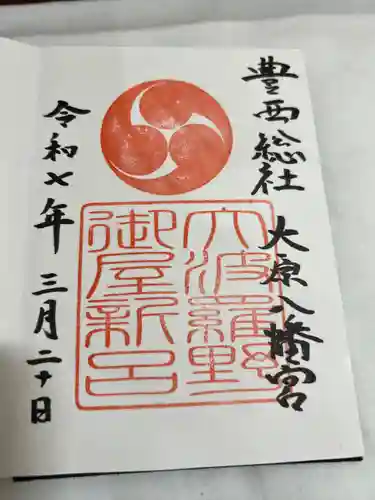 豊西総社 大原八幡宮
大波羅野
御屋新邑
令和七年 三月二十日